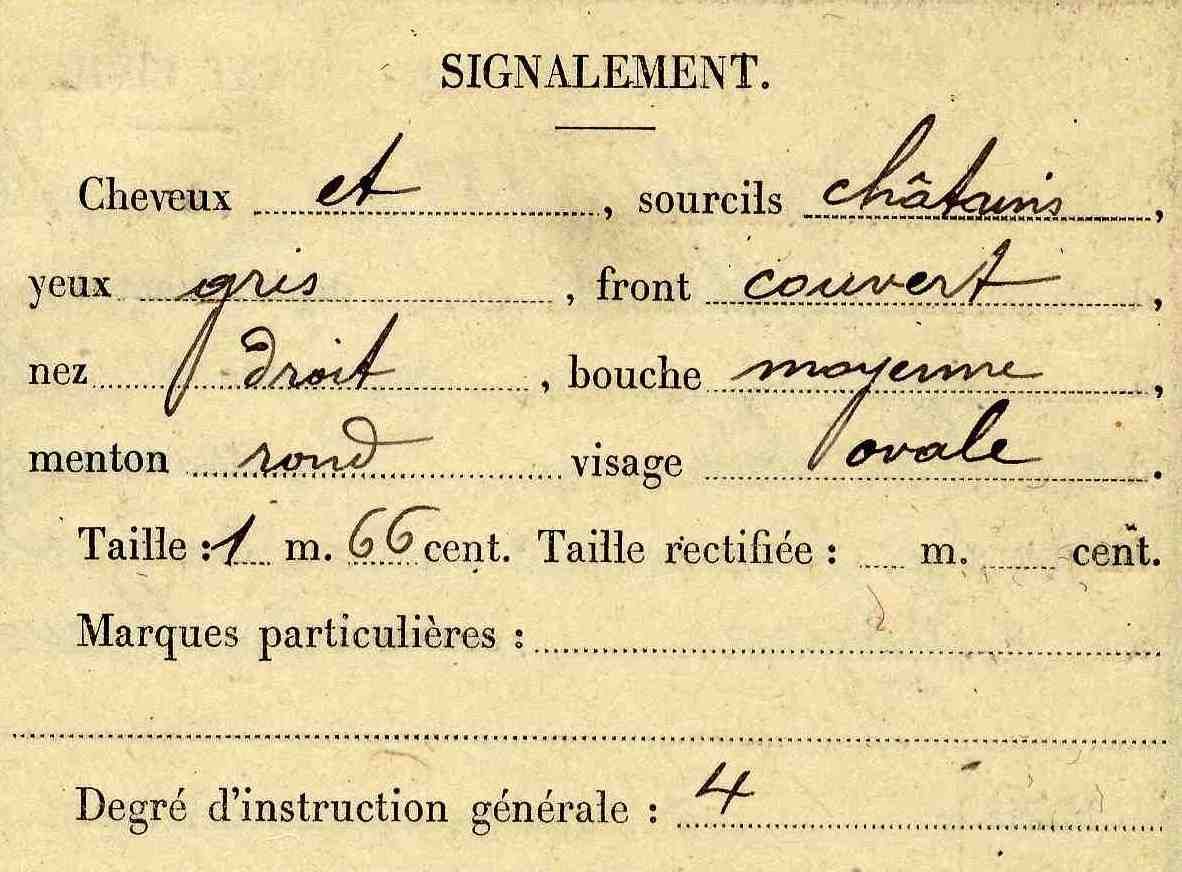 SIGNALEMENT.
Cheveux et, sourcils châtains,
yeux gris, front couvert,
nez droit, bouche moyenne,
menton rond visage ovale.
Taille : 1 m. 66 cent. Taille rectifiée : m. cent.
Marques particulières :
Degré d'instruction générale : 4